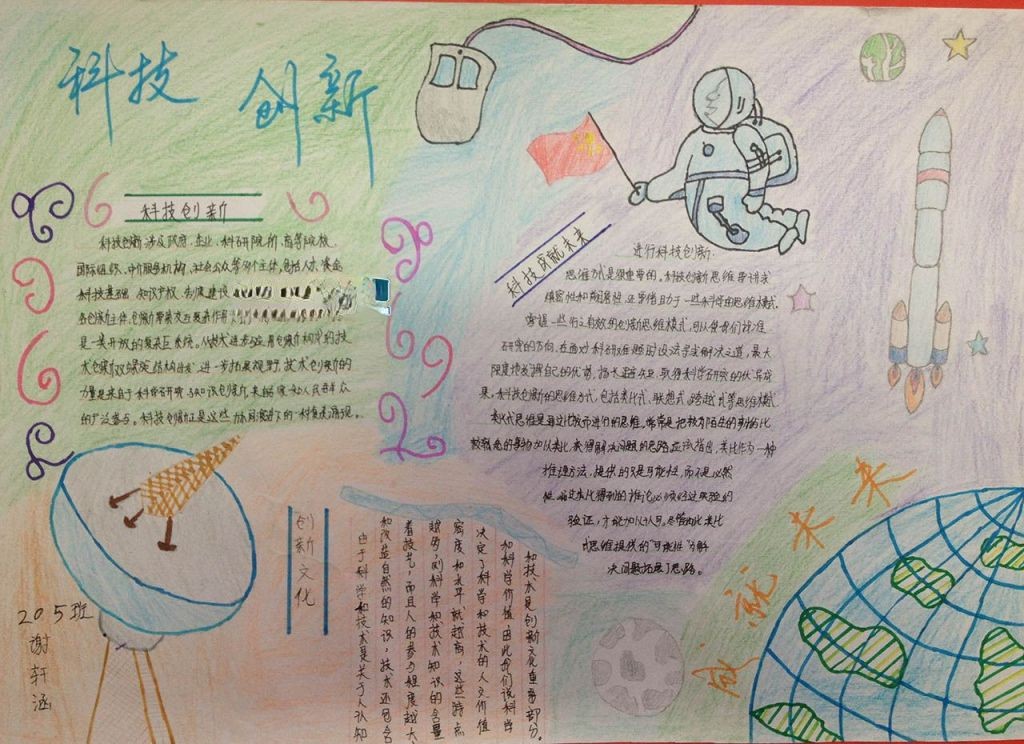 科技 创新
科技创新
科技创新涉及政府、企业、科研院所、高等院校、
国际组织、中介服务机构、社会公众等多个主体,包括人才、资金、
科技基础、知识产权、制度建设
各创新主体、创新要素交互复杂作用
是一类开放的复杂巨系统。从技术进步与应用创新构成的技
术创新双螺旋结构出发,进一步拓展视野,技术创新的
力量是来自于科学研究与知识创新,来自
的广泛参与。科技创新正是这些协同演进下的一种复杂涌现。
科技成就未来
进行科技创新
思维方式是很重要的,科技创新思维要讲求
缜密性和前瞻性,还要借助于一些科学的思维模式。
掌握一些行之有效的创新思维模式,可以使我们找准
研究的方向,在面对科研难题时设法寻求解决之道,最大
限度地发挥自己的优势,扬长避短,取得科学研究的优异成
果。科技创新的思维方式,包括类比式、联想式、跨越式等思维模式。
类比式思维是通过比较而进行的思维,常常是把较为陌生的事物比
较熟悉的事物加以类比,获得解决问题的思路。应该指出,类比作为一种
推理方法,提供的只是可能性,而不是必然
性。通过类比得到的推论必须经过实验的
验证,才能加以认可。尽管如此,类比
式思维提供的"可能性"为解
决问题拓展了思路。
创新文化
由于科学和技术是关于人认知
和改造自然的知识,技术还包含
着技艺,而且人的参与程度越大、
越好,则科学和技术知识的含量
密度和水平就越高,这些特点
决定了科学和技术的人文价值
和科学价值。因此我们说科学
和技术是创新文化重要部分。
成就未来
205班
谢轩涵